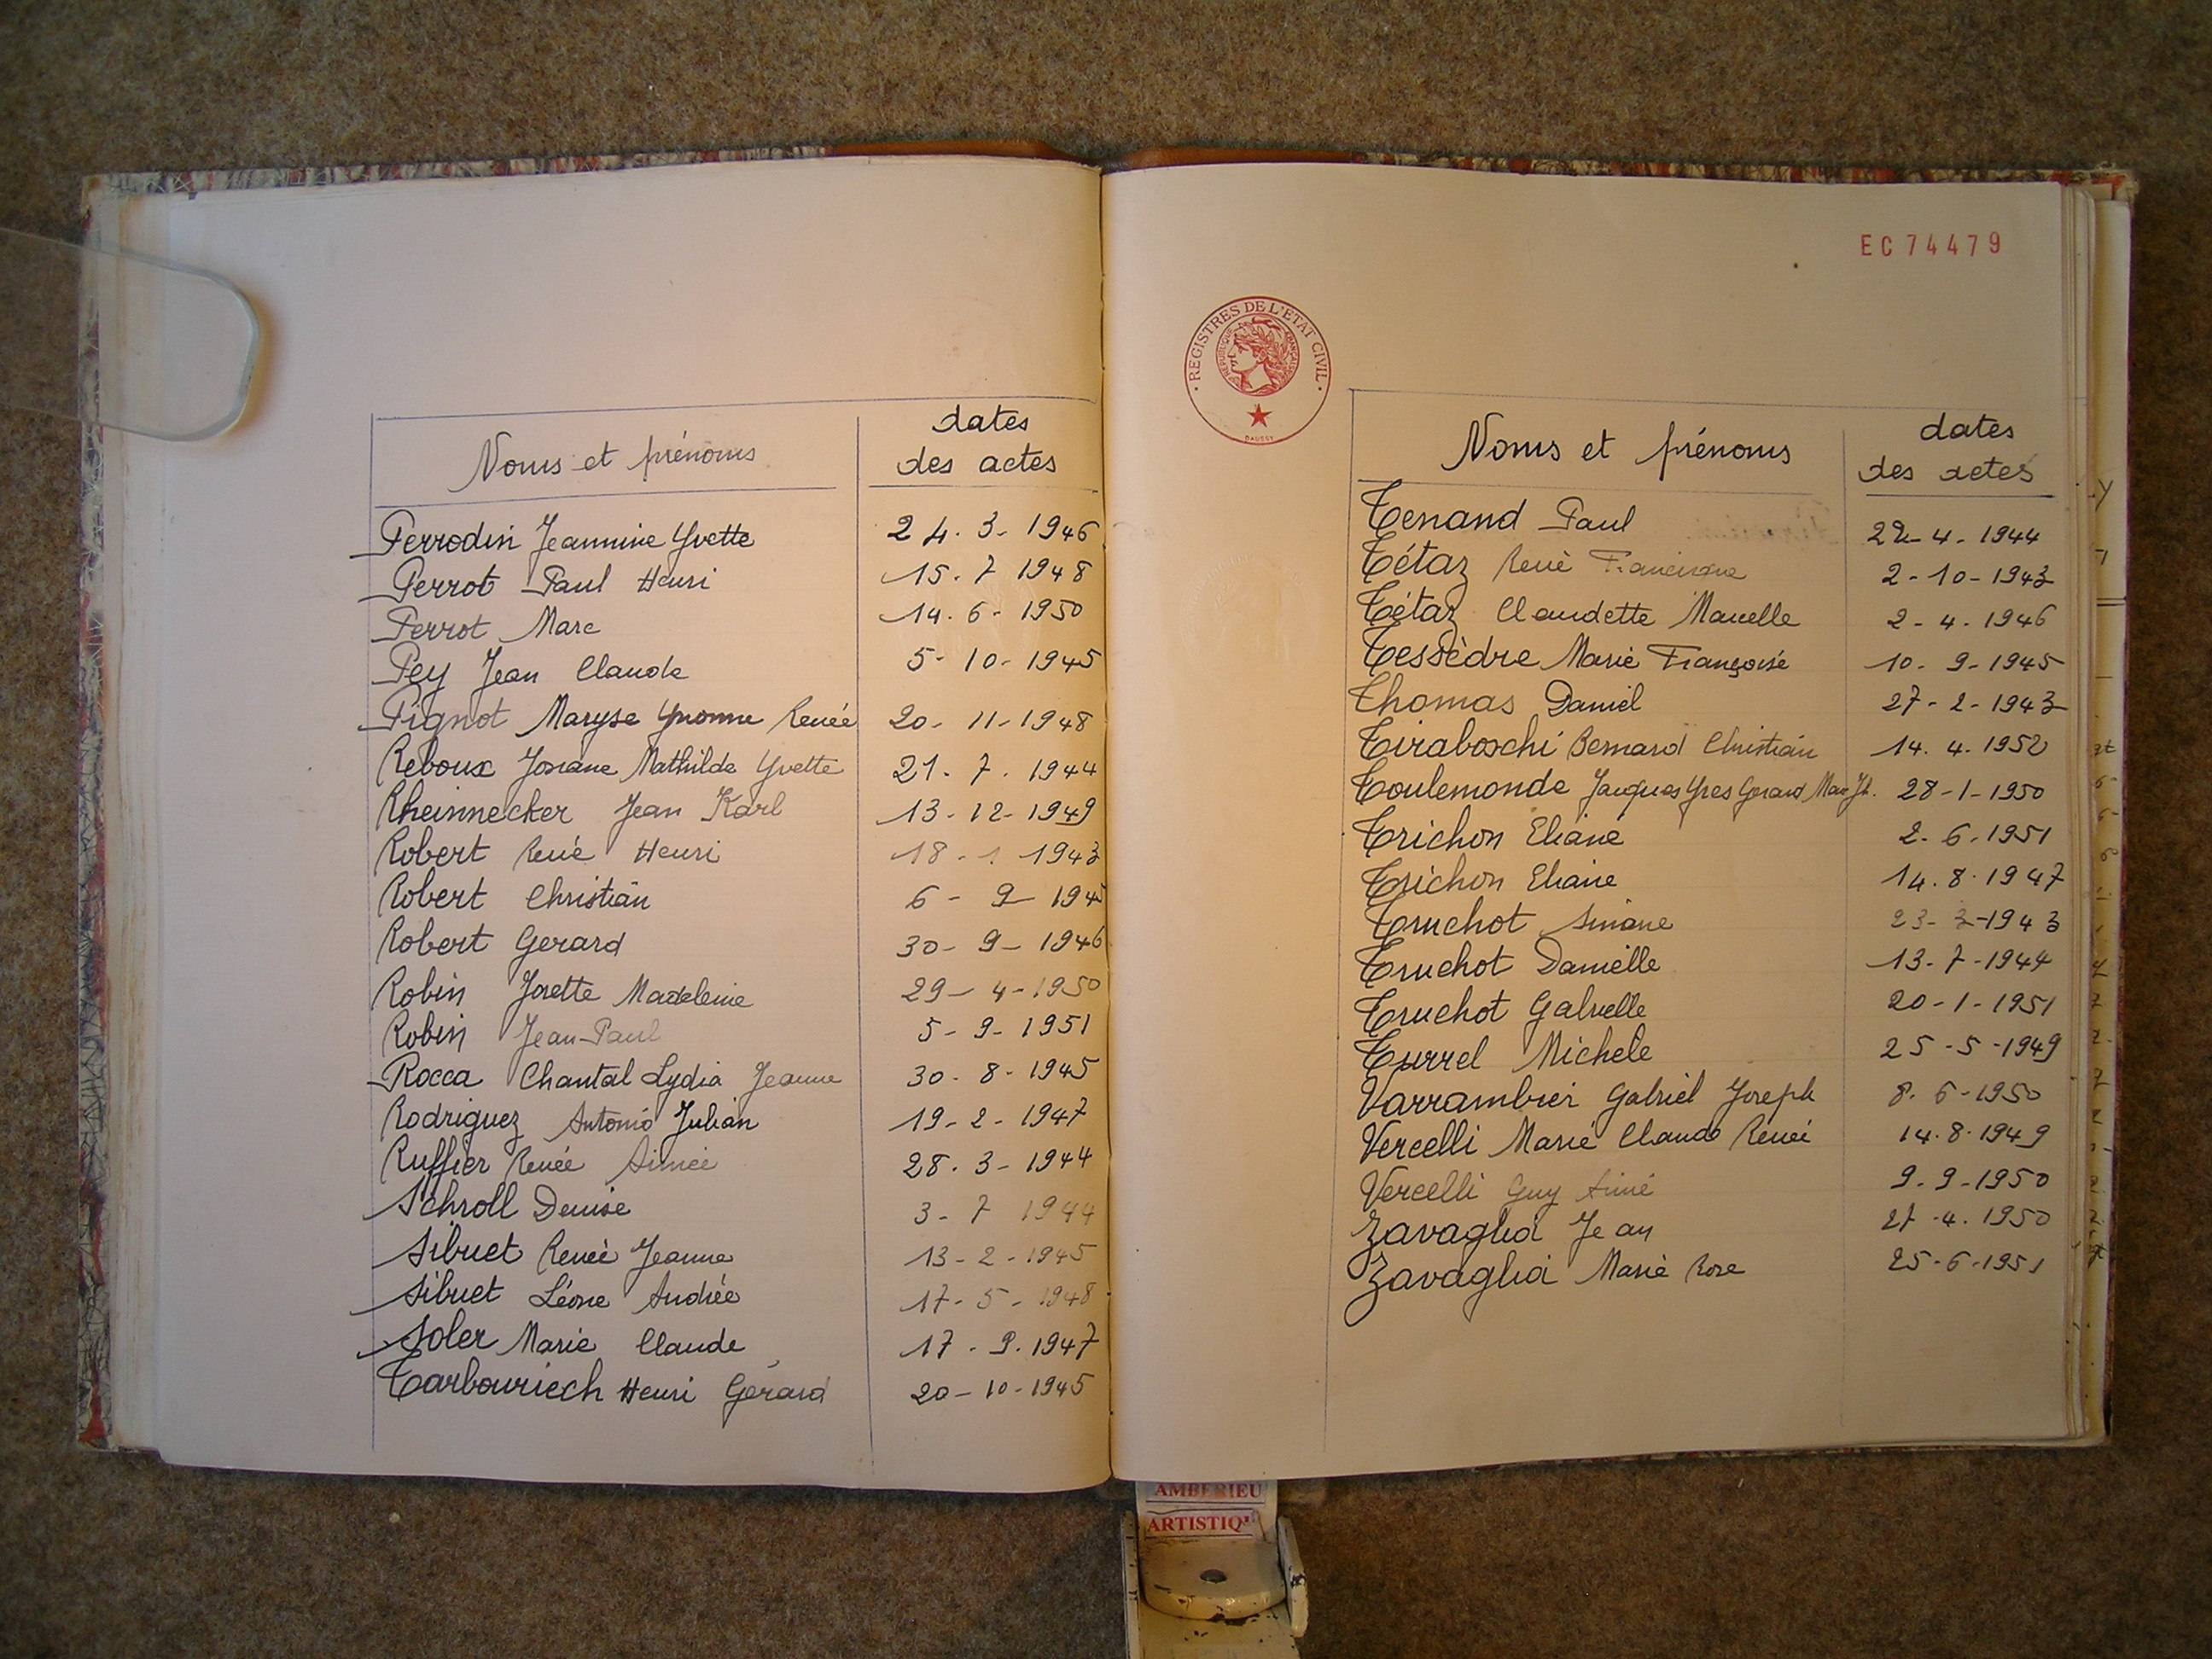 Noms et prénoms
dates
des actes
Perrodin Jeannine Yvette 24. 3- 1946
Perrot Paul Henri 15. 7 1948
Perrot Marc 14. 6- 1950
Pey Jean Claude 5- 10- 1945
Pignot Maryse Yvonne Renée 20- 11- 1948
Reboux Josiane Mathilde Yvette 21. 7. 1944
Rheinnecker Jean Karl 13- 12- 1949
Robert René Henri 18 - 1 1943
Robert Christian 6 - 9 - 194
Robert Gerard 30- 9- 1946
Robin Josette Madeleine 29- 4- 1950
Robin Jean-Paul 5- 9- 1951
Rocca Chantal Lydia Jeanne 30- 8- 1945
Rodriguez Antonio Julian 19- 2- 1947
Ruffier Renée Aimée 28. 3- 1944
Schroll Denise 3- 7 1944
Sibuet Renée Jeanne 13- 2- 1945
Sibuet Léone Andrée 17- 5- 1948
Soler Marie Claude 17. 9. 1947
Tarbouriech Henri Gérard 20- 10- 1945
EC 74479
REGISTRES DE L'ETAT CIVIL
Noms et prénoms
dates
des actes
Tenand Paul 4- 1944
Tétaz René Francisque 2- 10- 1943
Tétaz Claudette Marcelle 2- 4. 1946
Tessèdre Marie Françoise 10- 9- 1945
Thomas Daniel 27- 2- 1943
Tiraboschi Bernard Christian 14. 4. 1952
Toulemonde Jacques Yves Gerard Jh. 28-1-1950
Trichon Eliane 2. 6. 1951
Trichon Eliane 14. 8. 1947
Truchot 23- 3-1943
Truchot Danielle 13- 7- 1944
Truchot Gabrielle 20- 1- 1951
Turrel Michele 25- 5- 1949
Varrambier Gabriel Joseph 8. 6- 1950
Vercelli Marie Claude Renée 14. 8. 1949
Vercelli Guy Aimé 9. 9- 1950
Zavaglia Jean 27. 4. 1950
Zavaglia Marie Rose 25- 6- 1951
AMBERIEU
ARTISTIQ